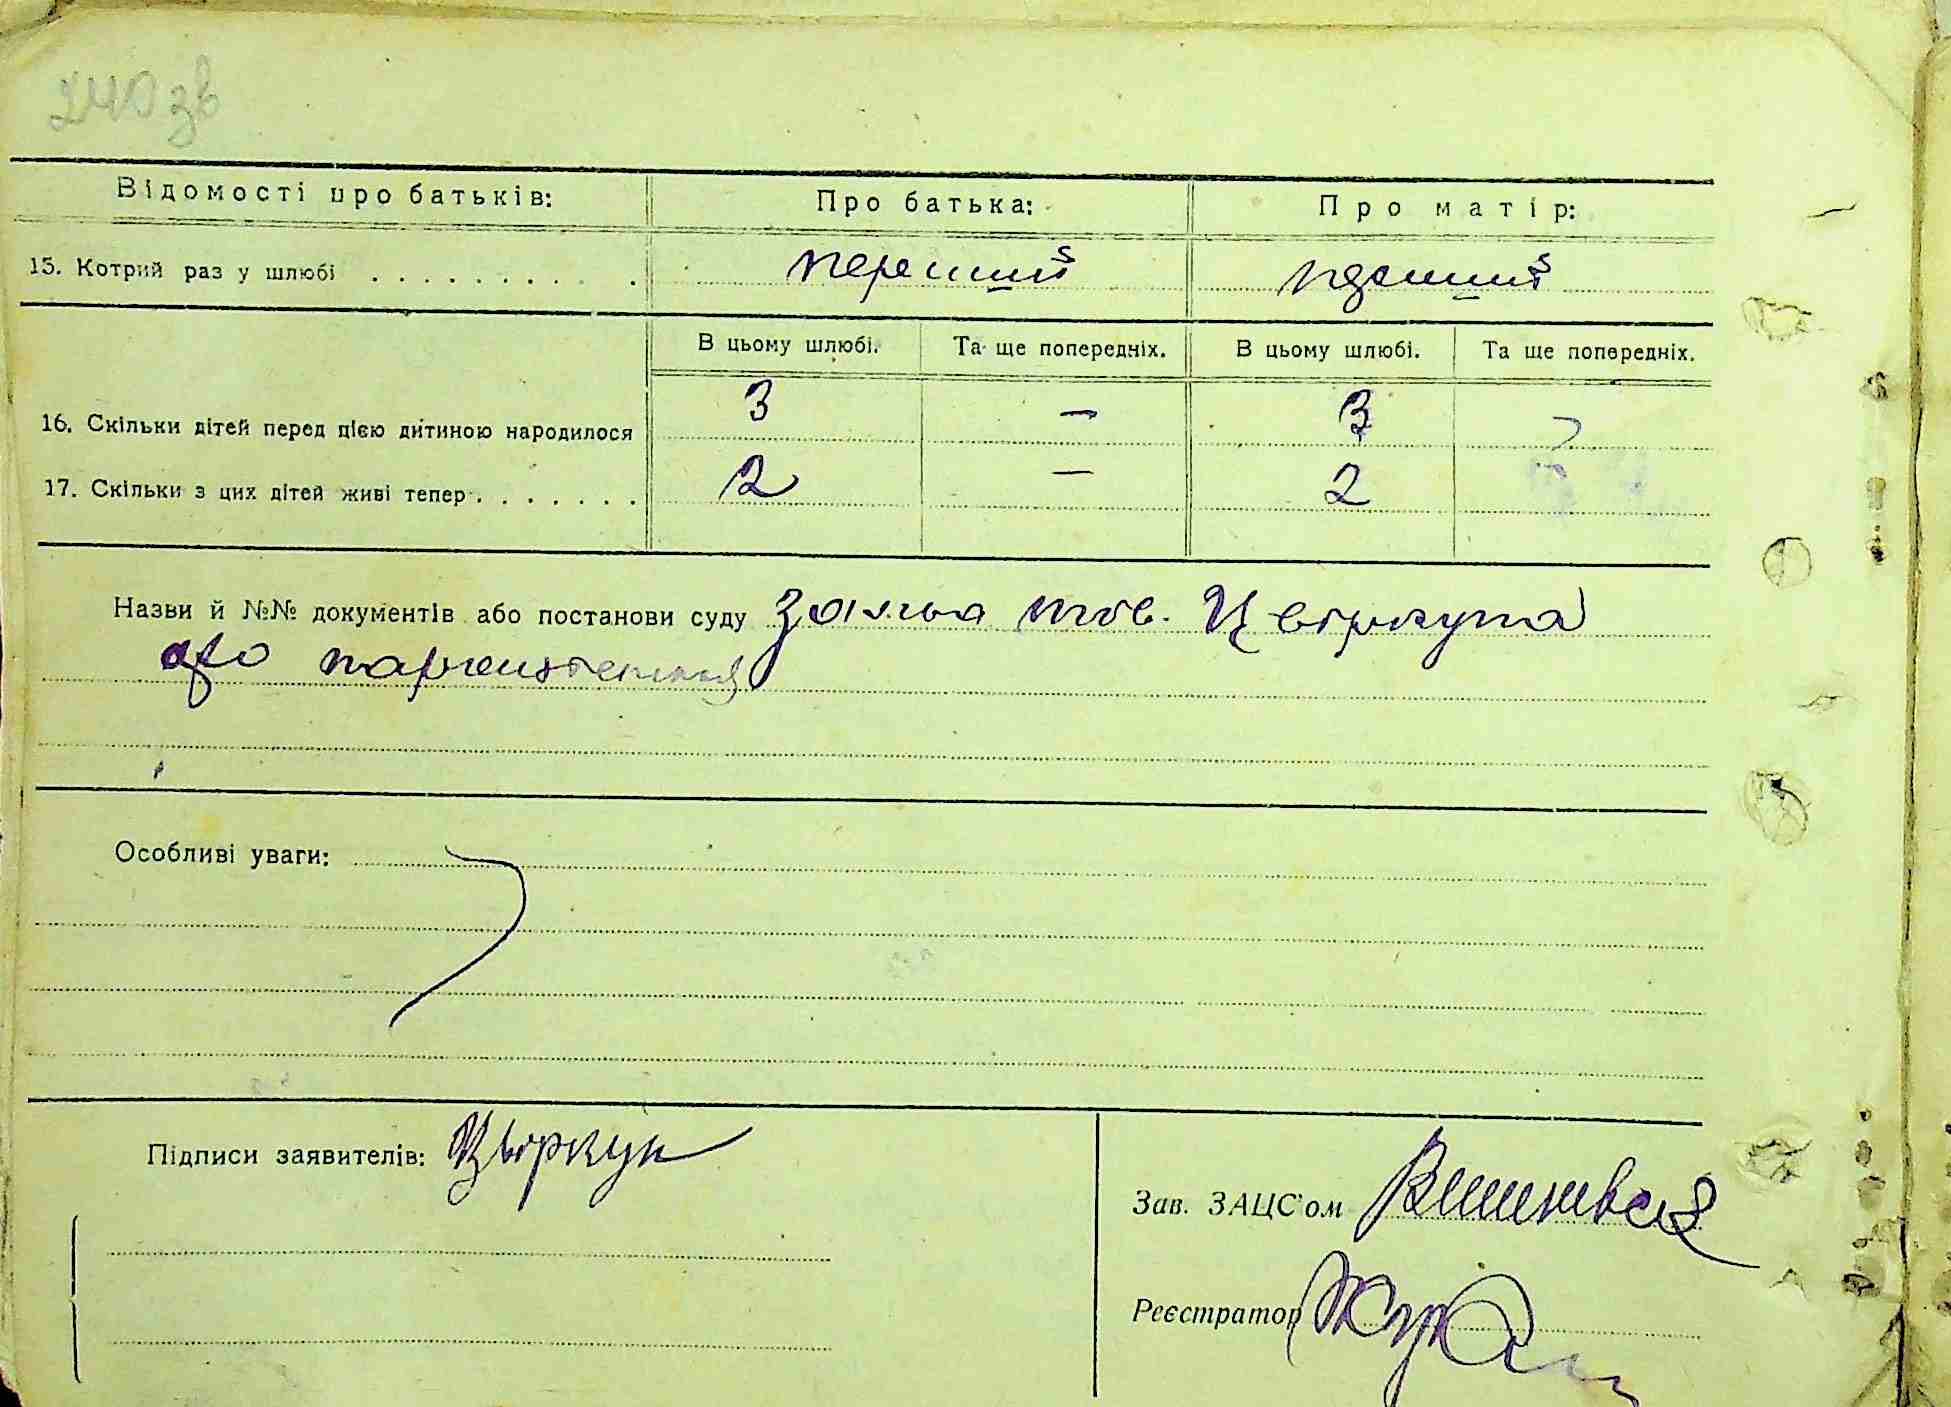 240 зв
Відомості про батьків: Про батька: Про матір:
15. Котрий раз у шлюбі . . . . . . . . . . перший перший
В цьому шлюбі. Та ще попередніх. В цьому шлюбі. Та ще попередніх.
16. Скільки дітей перед цією дитиною народилося 3 — 3
17. Скільки з цих дітей живі тепер . . . . . . . 2 — 2
Назви й №№ документів або постанови суду Заява тов. Цвіркуна
про народження
Особливі уваги:
Підписи заявителів: Цвіркун
Зав. ЗАЦС'ом
Реєстратор